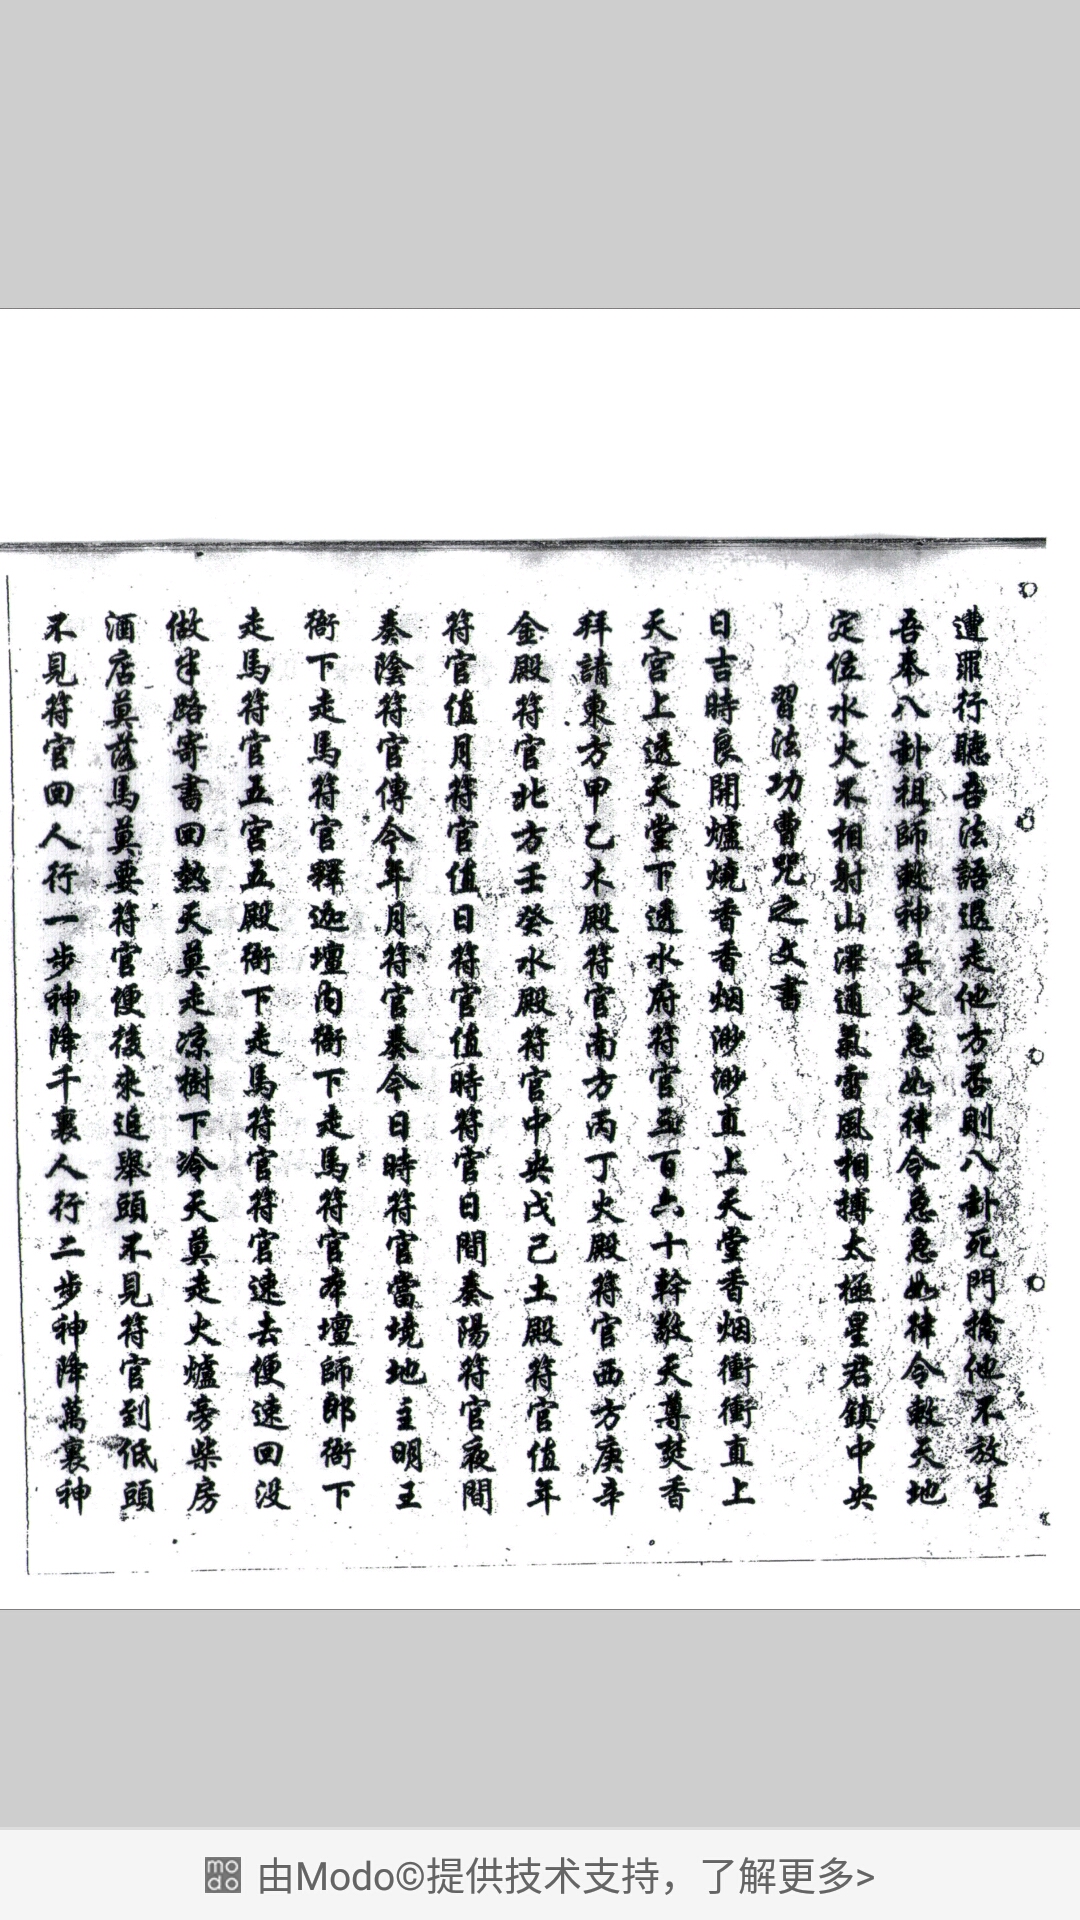 遭罪行聽吾法語退走他方否則八卦死門擒他不放生
吾奉八卦祖師敕神兵火急如律令急急如律令敕天地
定位水火不相射山澤通氣雷風相搏太極星君鎮中央
習法功曹咒之文書
日吉時良開爐燒香香烟渺渺直上天堂香烟衝衝直上
天宮上透天堂下透水府符官五百六十幹敬天尊焚香
拜請東方甲乙木殿符官南方丙丁火殿符官西方庚辛
金殿符官北方壬癸水殿符官中央戊己土殿符官值年
符官值月符官值日符官值時符官日間奏陽符官夜間
奏陰符官傳今年月符官奏今日時符官當境地主明王
衙下走馬符官釋迦壇內衙下走馬符官本壇師郎衙下
走馬符官五宮五殿衙下走馬符官符官速去便速回没
做半路寄書回熱天莫走凉樹下冷天莫走火爐旁柴房
酒店莫落馬莫要符官便後來追舉頭不見符官到低頭
不見符官回人行一步神降千裏人行二步神降萬裏神
由Modo©提供技术支持，了解更多>